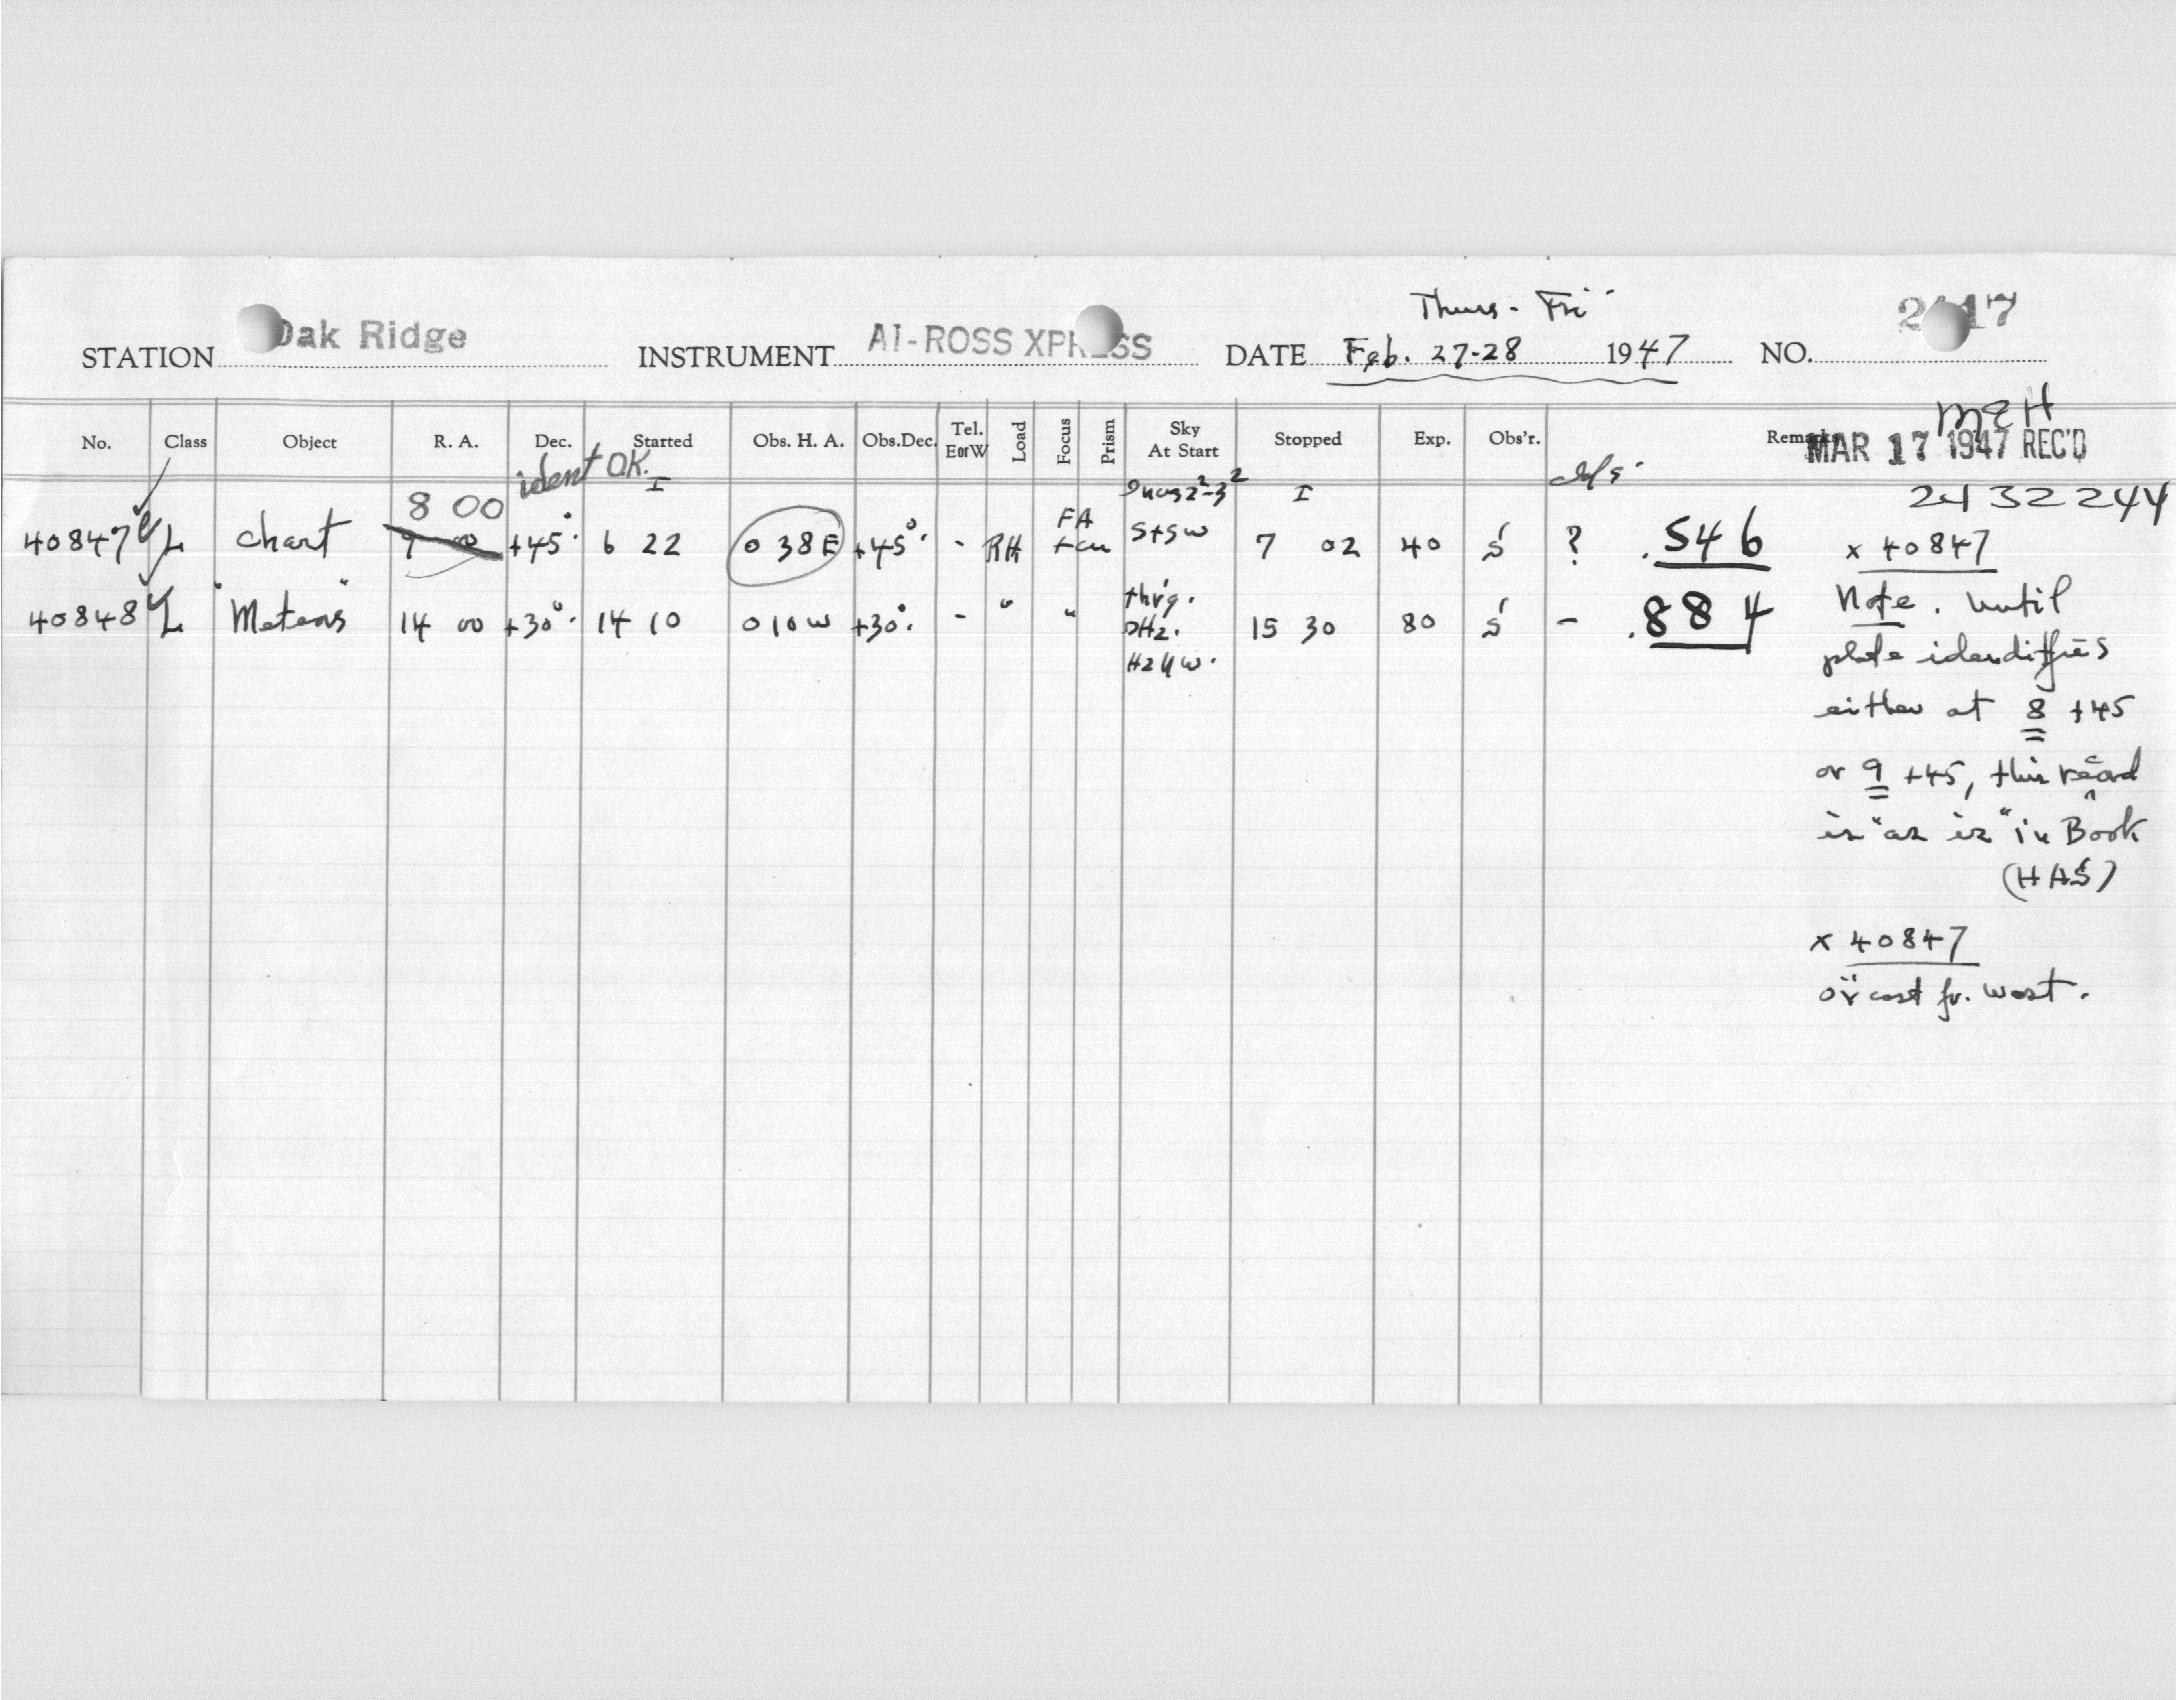 Thurs - Fri
STATION Oak Ridge INSTRUMENT AI-ROSS XPRESS DATE Feb. 27-28 1947 NO.
MEH
No. Class Object R. A. Dec. Started Obs. H. A. Obs.Dec. Tel. EorW Load Focus Prism Sky At Start Stopped Exp. Obs'r. Remarks
MAR 17 1947 REC'D
ident OK.
2432244
8 00
40847 L chart 9 00 +45° 6 22 0 38 E +45° - RH FA S+SW 7 02 40 S ? .546
40848 L "Meteors" 14 00 +30° 14 10 0 10 W +30° - " " 15 30 80 S - .884
x 40847
Note. Until
plate identifies
either at 8 +45
or 9 +45, this record
is "as is" in Book
(HAS)
x 40847
ov'cast fr. west.